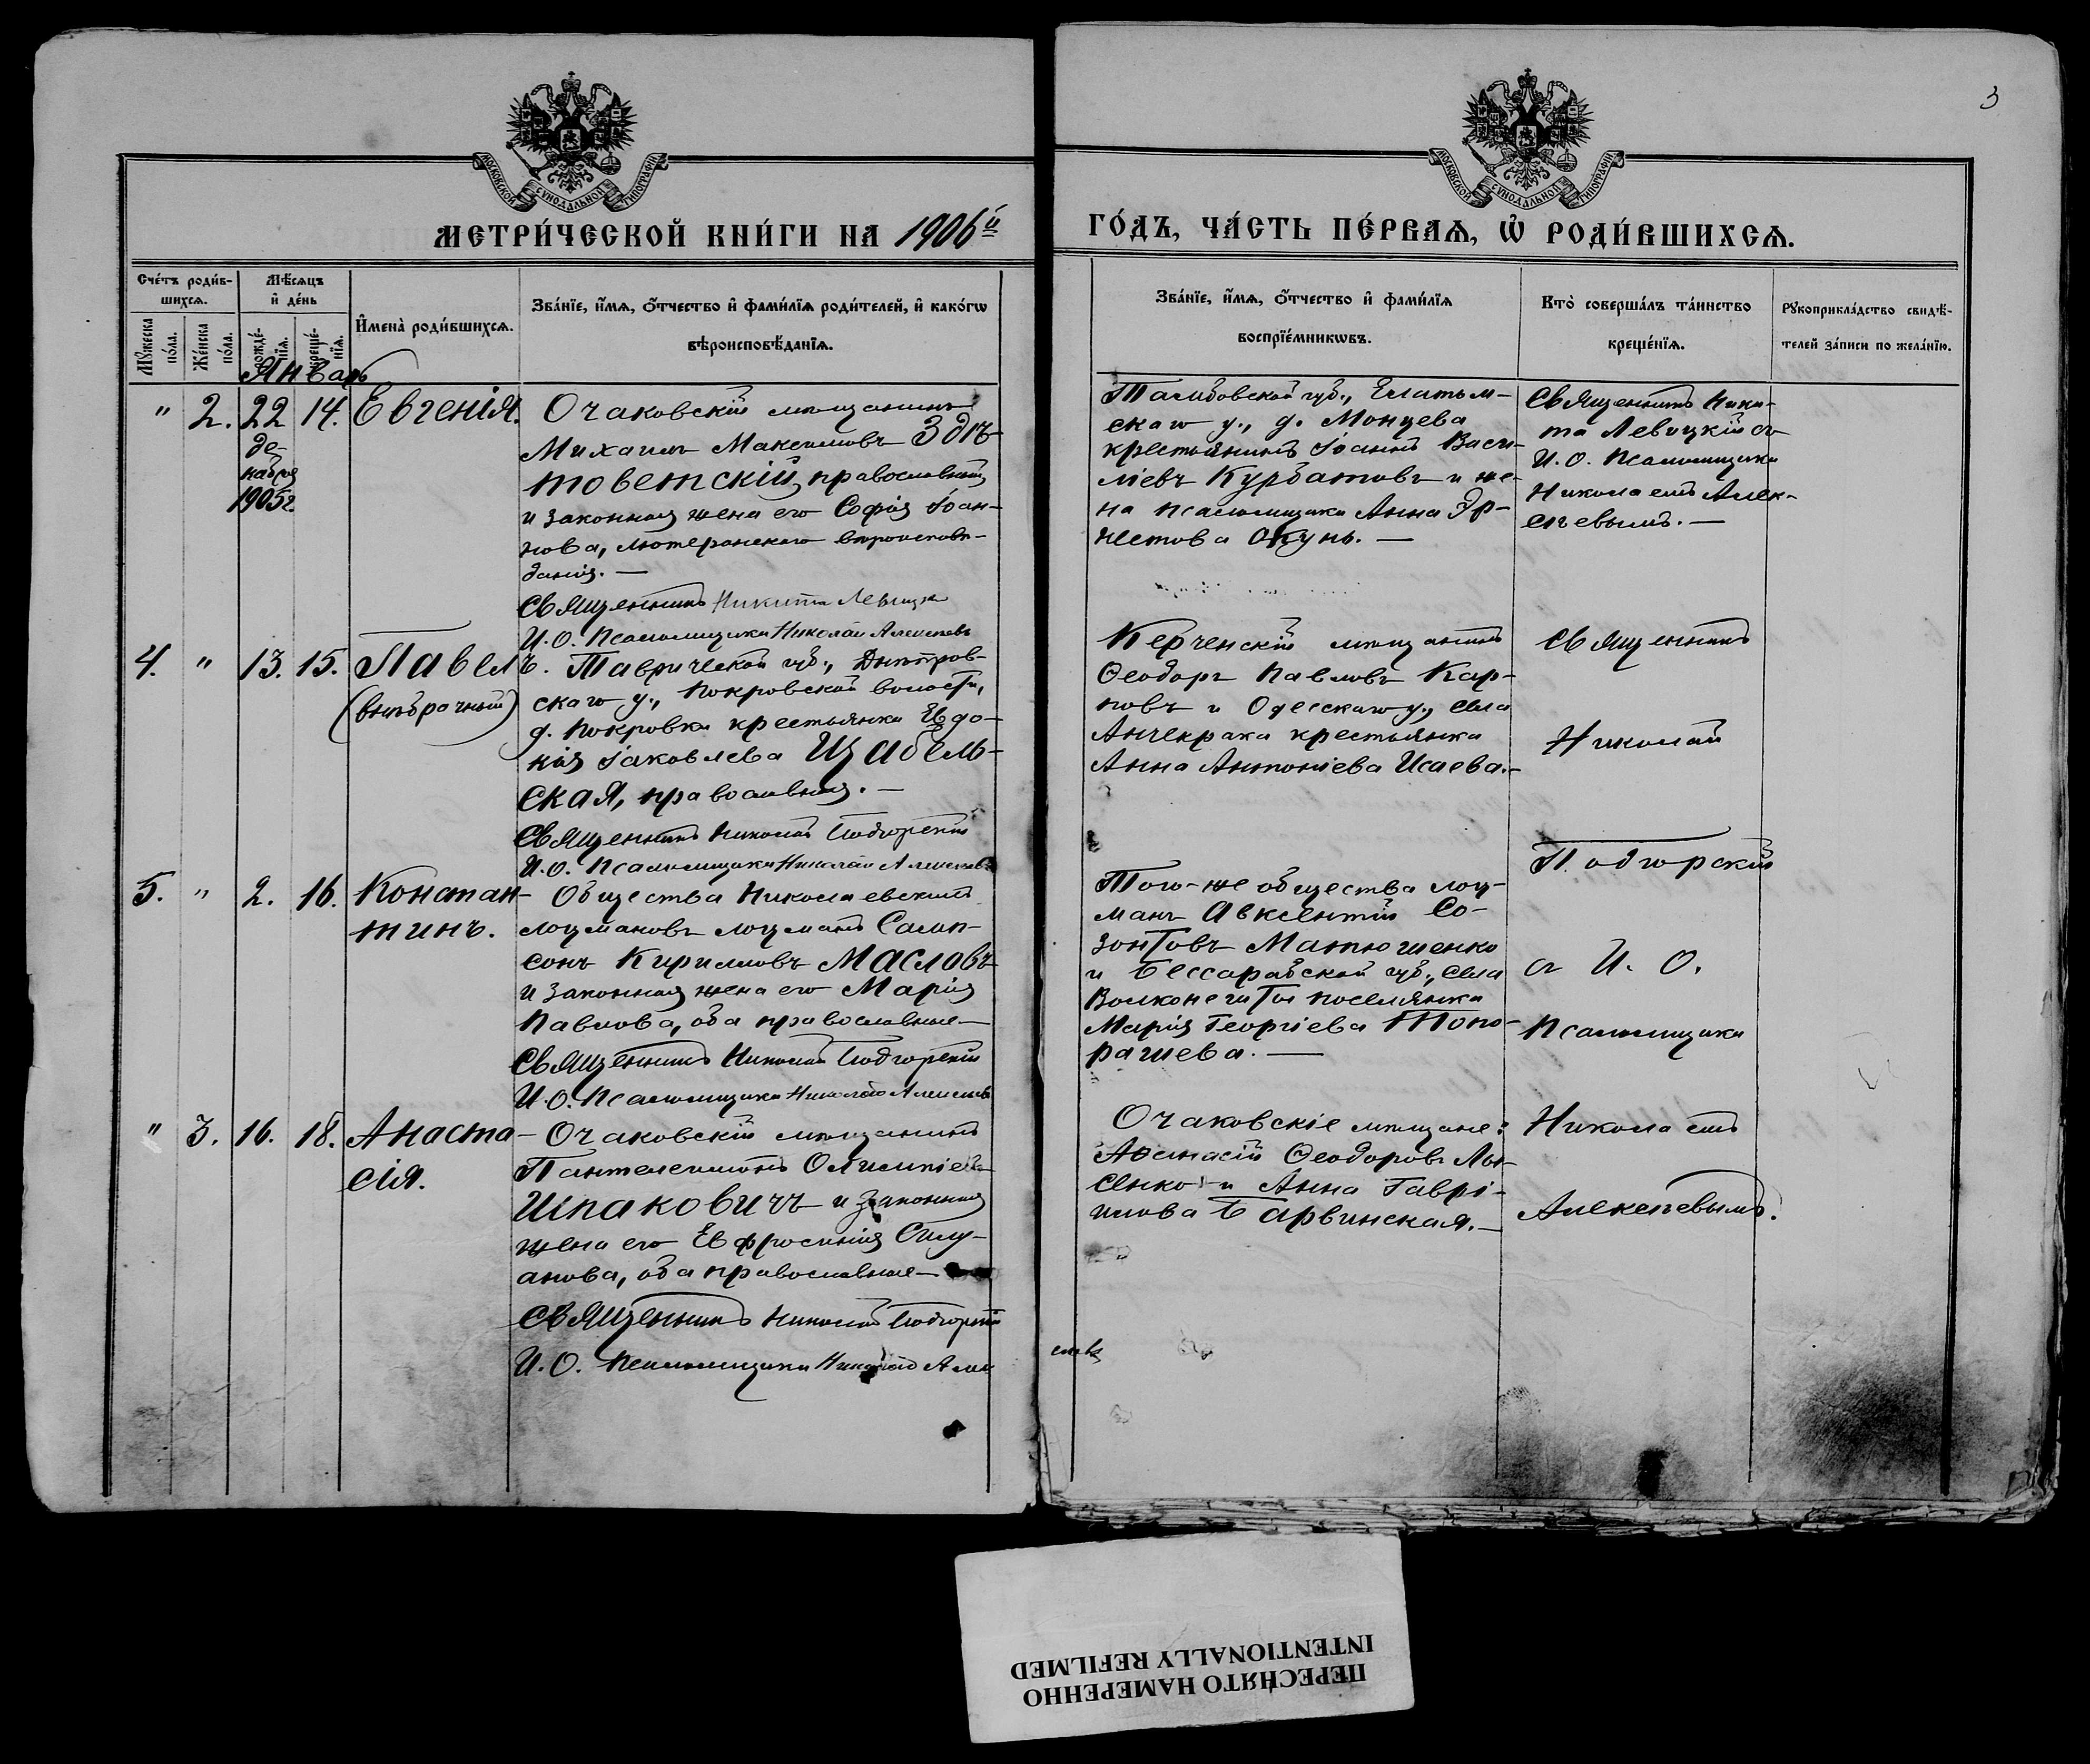 3
МОСКОВСКОЙ СѴНОДАЛЬНОЙ ТИПОГРАФІИ
МОСКОВСКОЙ СѴНОДАЛЬНОЙ ТИПОГРАФІИ
МЕТРИ́ЧЕСКОЙ КНИ́ГИ НА 1906й
ГО́ДЪ, ЧА́СТЬ ПЕ́РВАѦ, Ѡ РОДИ́ВШИХСѦ.
Сче́тъ роди́в-
шихсѧ.
Мѣ́сѧцъ
и҆ де́нь
Мꙋжеска
по́ла.
Же́нска
по́ла.
рожде́-
нїѧ.
креще́-
нїѧ.
И҆мена̀ роди́вшихсѧ.
Зва́нїе, и҆́мѧ, ѻ҆́тчество и҆ фами́лїѧ роди́телей, и҆ како́гѡ
вѣроисповѣ́данїѧ.
Зва́нїе, и҆́мѧ, ѻ҆́тчество и҆ фами́лїѧ
воспрїе́мникѡвъ.
Кто̀ соверша́лъ та́инство
креще́нїѧ.
Рꙋкоприкла́дство свидѣ́-
телей за́писи по жела́нїю.
Январь
" 2. 22 14. Евгенія.
де-
кабря
1905г
Очаковскій мѣщанинъ
Михаилъ Максимовъ
товетскій, православный
и законная жена его Софія Іоан-
нова, лютеранскаго вѣроисповѣ-
данія. —
Священникъ Никита Левицкій
И. О. Псаломщика Николай Алексѣевъ
Тамбовской губ., Елатьм-
скаго у., д. Монцева
крестьянинъ Іоаннъ Васи-
ліевъ Курбатовъ и же-
на псаломщика Анна Эр-
нестова Окунь. —
Священникъ Ники-
та Левицкій съ
И. О. псаломщика
Николаемъ Алек-
сѣевымъ. —
4. " 13. 15. Павелъ.
(внѣбрачный)
Таврической губ., Днѣпров-
скаго у., Покровской волости,
д. Покровки крестьянка Евдо-
кія Іаковлева
ская, православная. —
Священникъ Николай Подгорскій
И. О. Псаломщика Николай Алексѣевъ
Керченскій мѣщанинъ
Ѳеодоръ Павловъ Кар-
повъ и Одесскаго у., села
Анчекрака крестьянка
Анна Антоніева Исаева. —
Священникъ
Николай
Подгорскій
5. " 2. 16. Констан-
тинъ.
Общества Николаевскихъ
лоцмановъ лоцманъ Самп-
сонъ Кирилловъ Масловъ
и законная жена его Марія
Павлова, оба православные —
Священникъ Николай Подгорскій
И. О. Псаломщика Николай Алексѣевъ
Того-же общества лоц-
манъ Авксентій Со-
зонтовъ Матюшенко
и Бессарабской губ., села
поселянка
Марія Георгіева Топо-
рашева. —
съ И. О.
псаломщика
" 3. 16. 18. Анаста-
сія.
Очаковскій мѣщанинъ
Пантелеимонъ Олимпіевъ
Шпаковичъ и законная
жена его Евфросинія Силу-
анова, оба православные —
Священникъ Николай Подгорскій
И. О. Псаломщика Николай Алек
сѣевъ
Очаковскіе мѣщане:
Аѳанасій Ѳеодоровъ Лы-
сенко и Анна Гаврі-
илова Барвинская. —
Николаемъ
Алексѣевымъ.
ПЕРЕСНЯТО НАМЕРЕННО
INTENTIONALLY REFILMED